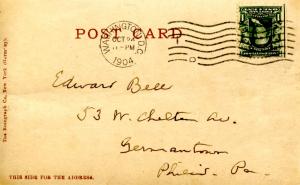 POST CARD
WASHINGTON, D.C.
OCT
-PM
1904
Edward Bell
53 W. Chelten Av.
Germantown
Philad. Pa.
THIS SIDE FOR THE ADDRESS.
The Rotograph Co., New York (Germany).